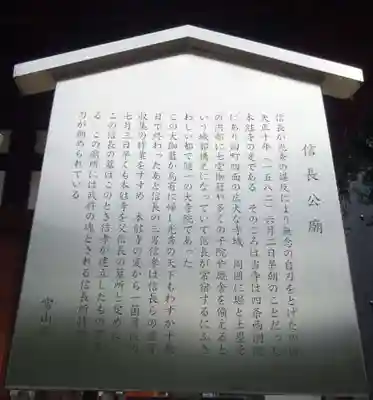 信長公廟
信長が光秀の謀反により無念の自刃をとげたのは
天正十年(一五八二)六月二日早朝のことだった
本能寺の変である そのころは当寺は四条西洞院
にあり四町四面の広大な寺域 周囲に堀と土塁を
の内部に七堂伽藍や多くの子院や厩舎を備えると
いう城郭構えになっていて信長が常宿するにふさ
わしい都で随一の大寺院であった
この大伽藍が烏有に帰し光秀の天下もわずか十
日で終わったあと信長の三男信孝は信長らの遺骨
収集の作業をすすめ 本能寺の変から一箇月後の
七月三日早くも本能寺を父信長の墓所と定めた
この信長の墓はこのとき信孝が建立したもので
る この廟所には武将の魂とされる信長所持
刀が納められている
当山